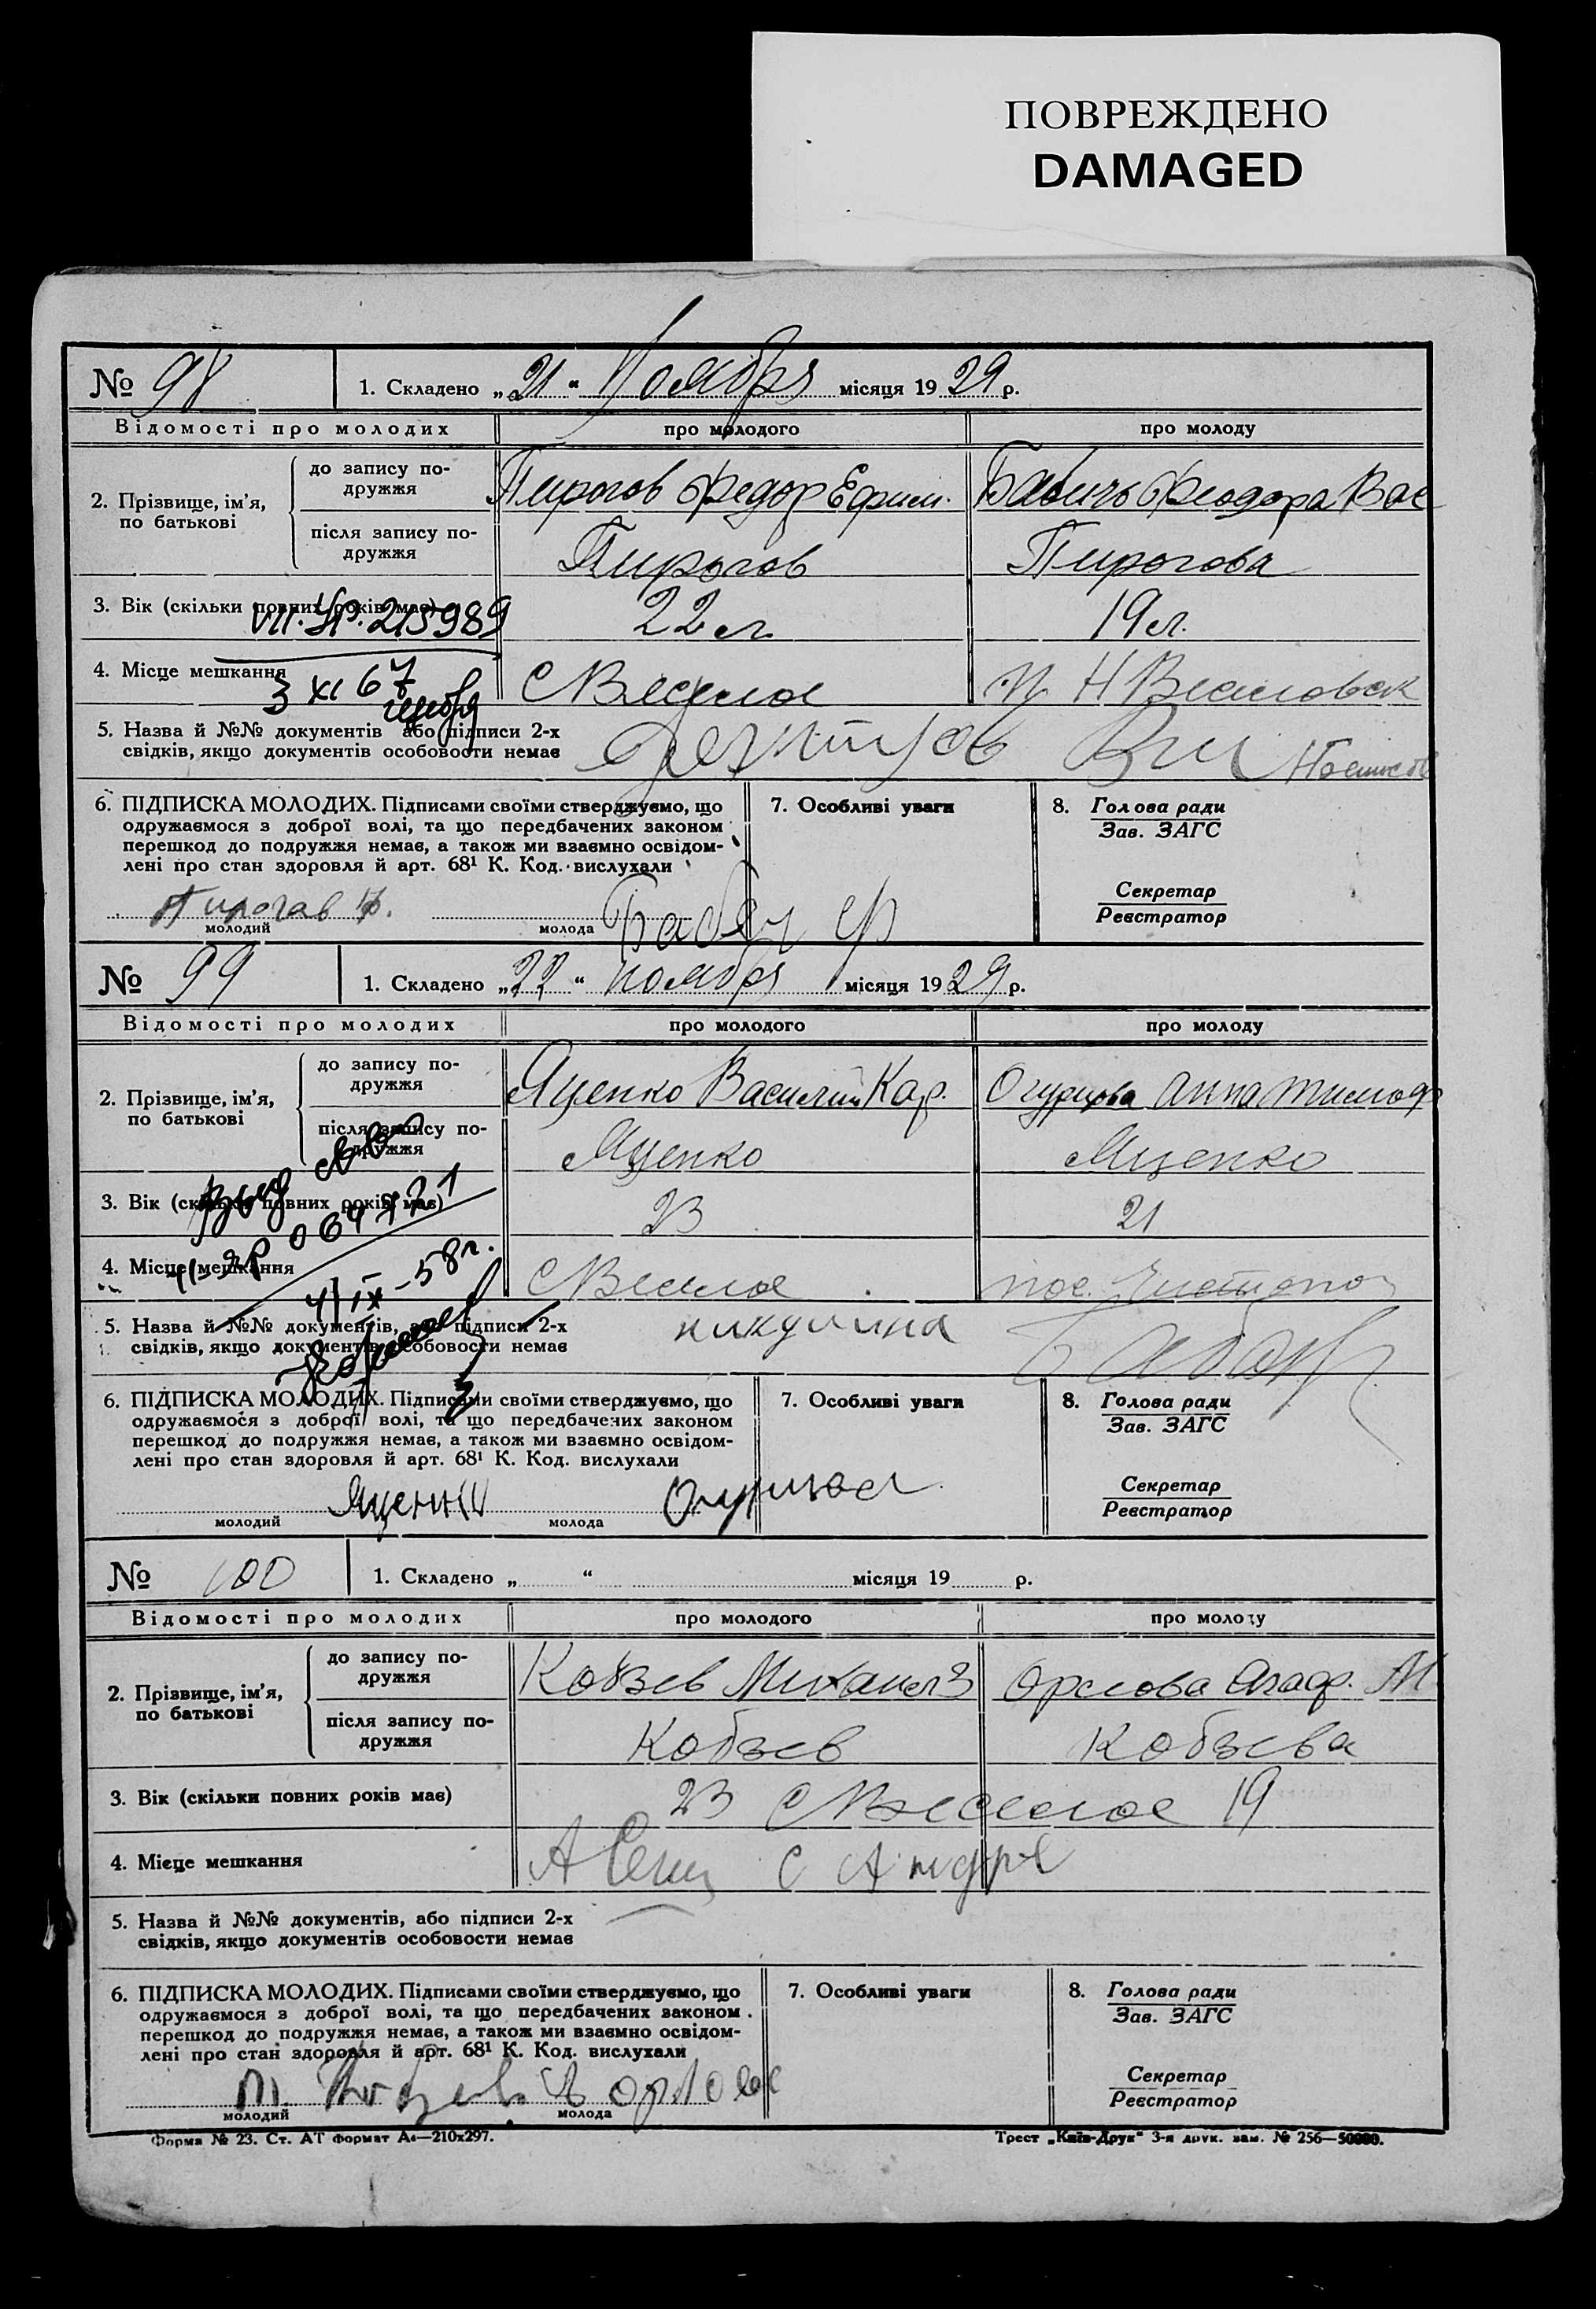 ПОВРЕЖДЕНО
DAMAGED
№ 98 1. Складено „21“ Ноября місяця 1929 р.
Відомості про молодих про молодого про молоду
2. Прізвище, ім’я, по батькові
до запису подружжя Пирогов Федор Ефим. Бабичь Феодора Вас
після запису подружжя Пирогов Пирогова
3. Вік (скільки повних років має) 22 л. 19 л.
215989
4. Місце мешкання С Веселое
3 XI 67
5. Назва й №№ документів або підписи 2-х
свідків, якщо документів особовости немає
6. ПІДПИСКА МОЛОДИХ. Підписами своїми стверджуємо, що
одружаємося з доброї волі, та що передбачених законом
перешкод до подружжя немає, а також ми взаємно освідом-
лені про стан здоровля й арт. 68¹ К. Код. вислухали
7. Особливі уваги
8. Голова ради
Зав. ЗАГС
Секретар
Реєстратор
Пирогав Ф.
молодий молода
№ 99 1. Складено „22“ ноября місяця 1929 р.
Відомості про молодих про молодого про молоду
2. Прізвище, ім’я, по батькові
до запису подружжя Яценко Василий Кар. Огурцова Анна Тимоф
після запису подружжя Яценко Яценко
3. Вік (скільки повних років має) 23 21
4. Місце мешкання С Веселое пос.
5. Назва й №№ документів, або підписи 2-х
свідків, якщо документів особовости немає
никулина
6. ПІДПИСКА МОЛОДИХ. Підписами своїми стверджуємо, що
одружаємося з доброї волі, та що передбачених законом
перешкод до подружжя немає, а також ми взаємно освідом-
лені про стан здоровля й арт. 68¹ К. Код. вислухали
7. Особливі уваги
8. Голова ради
Зав. ЗАГС
Секретар
Реєстратор
молодий молода
№ 100 1. Складено „ “ місяця 19 р.
Відомості про молодих про молодого про молоду
2. Прізвище, ім’я, по батькові
до запису подружжя Кобзев Михаил З Орлова Агаф. М
після запису подружжя Кобзев Кобзева
3. Вік (скільки повних років має) 23 С Веселое 19
4. Місце мешкання
5. Назва й №№ документів, або підписи 2-х
свідків, якщо документів особовости немає
6. ПІДПИСКА МОЛОДИХ. Підписами своїми стверджуємо, що
одружаємося з доброї волі, та що передбачених законом
перешкод до подружжя немає, а також ми взаємно освідом-
лені про стан здоровля й арт. 68¹ К. Код. вислухали
7. Особливі уваги
8. Голова ради
Зав. ЗАГС
Секретар
Реєстратор
молодий молода
Форма № 23. Ст. АТ Формат А₄—210x297.
Трест „Київ-Друк“ 3-я друк. зам. № 256—50000.